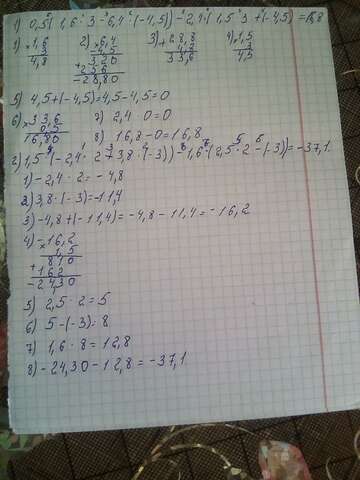 1) 0,5(1,6 · 3 - 6,4 · (-4,5)) - 2,4 · (1,5 · 3 + (-4,5) =
1) × 1,6
3
4,8
2) × 6,4
4,5
320
+ 256
- 28,80
3) + 28,8
4,8
33,6
4) × 1,5
3
4,5
5) 4,5 + (-4,5) = 4,5 - 4,5 = 0
6) × 33,6
0,5
16,80
7) 2,4 · 0 = 0
8) 16,8 - 0 = 16,8
2) 1,5 · (-2,4 · 2 + 3,8 · (-3)) - 1,6 · (2,5 · 2 - (-3)) = -37,1
1) -2,4 · 2 = -4,8
2) 3,8 · (-3) = -11,4
3) -4,8 + (-11,4) = -4,8 - 11,4 = -16,2
4) - × 16,2
1,5
810
+ 162
- 24,30
5) 2,5 · 2 = 5
6) 5 - (-3) = 8
7) 1,6 · 8 = 12,8
8) - 24,30 - 12,8 = -37,1